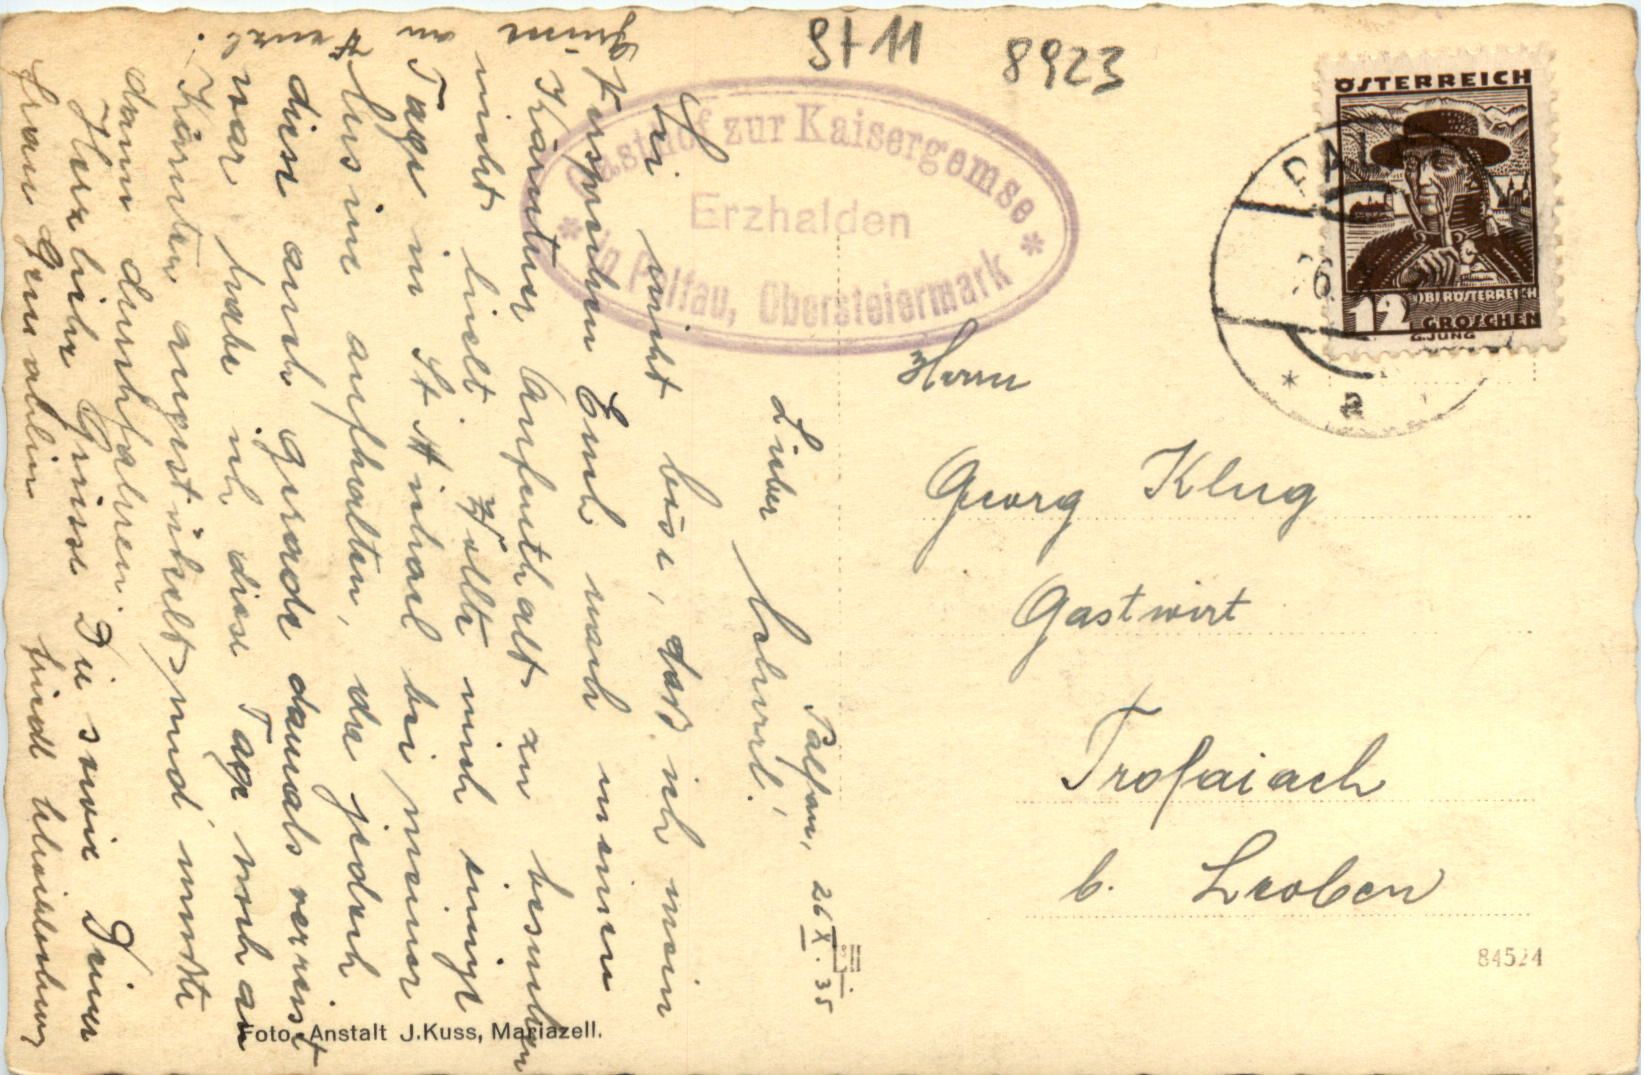 St 11
8923
ÖSTERREICH
OBERÖSTERREICH
12 GROSCHEN
G.JUNG
PAL
a
Gasthof zur Kaisergemse
Erzhalden
in Palfau, Obersteiermark
Palfau, 26.X.35
Lieber
Sei nicht böse, daß ich mein
Versprechen Euch nach meinem
Kärntner Aufenthalt zu besuchen
nicht hielt. Wollte mich einige
Tage in St Michael bei meiner
Cusine aufhalten, die jedoch
dise auch gerade damals verreist
war habe ich diese Tage noch an
Kärnten angestückelt und mußte
dann durchfahren.
Herzliche Grüsse Dir sowie Deiner
Frau Gemahlin
Grüsse an
Herrn
Georg Klug
Gastwirt
Trofaiach
b. Leoben
84524
Foto-Anstalt J.Kuss, Mariazell.